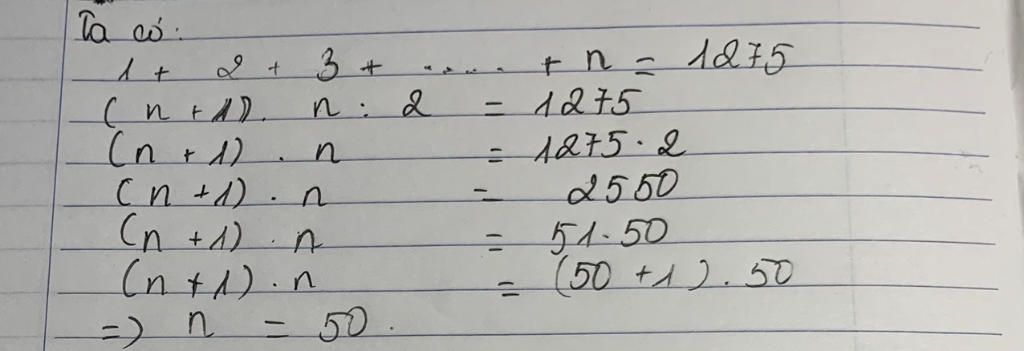 Ta có:
1 + 2 + 3 + ..... + n = 1275
(n+1). n : 2 = 1275
(n + 1) . n = 1275.2
(n +1) . n = 2550
(n +1) . n = 51.50
(n +1) . n = (50 +1). 50
=) n = 50.